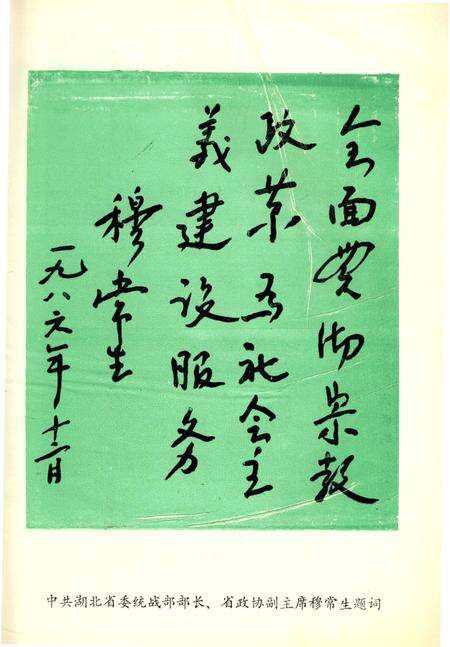 全面贯彻宗教
政策为社会主
义建设服务
穆常生
一九八六年十二月
中共湖北省委统战部部长、省政协副主席穆常生题词